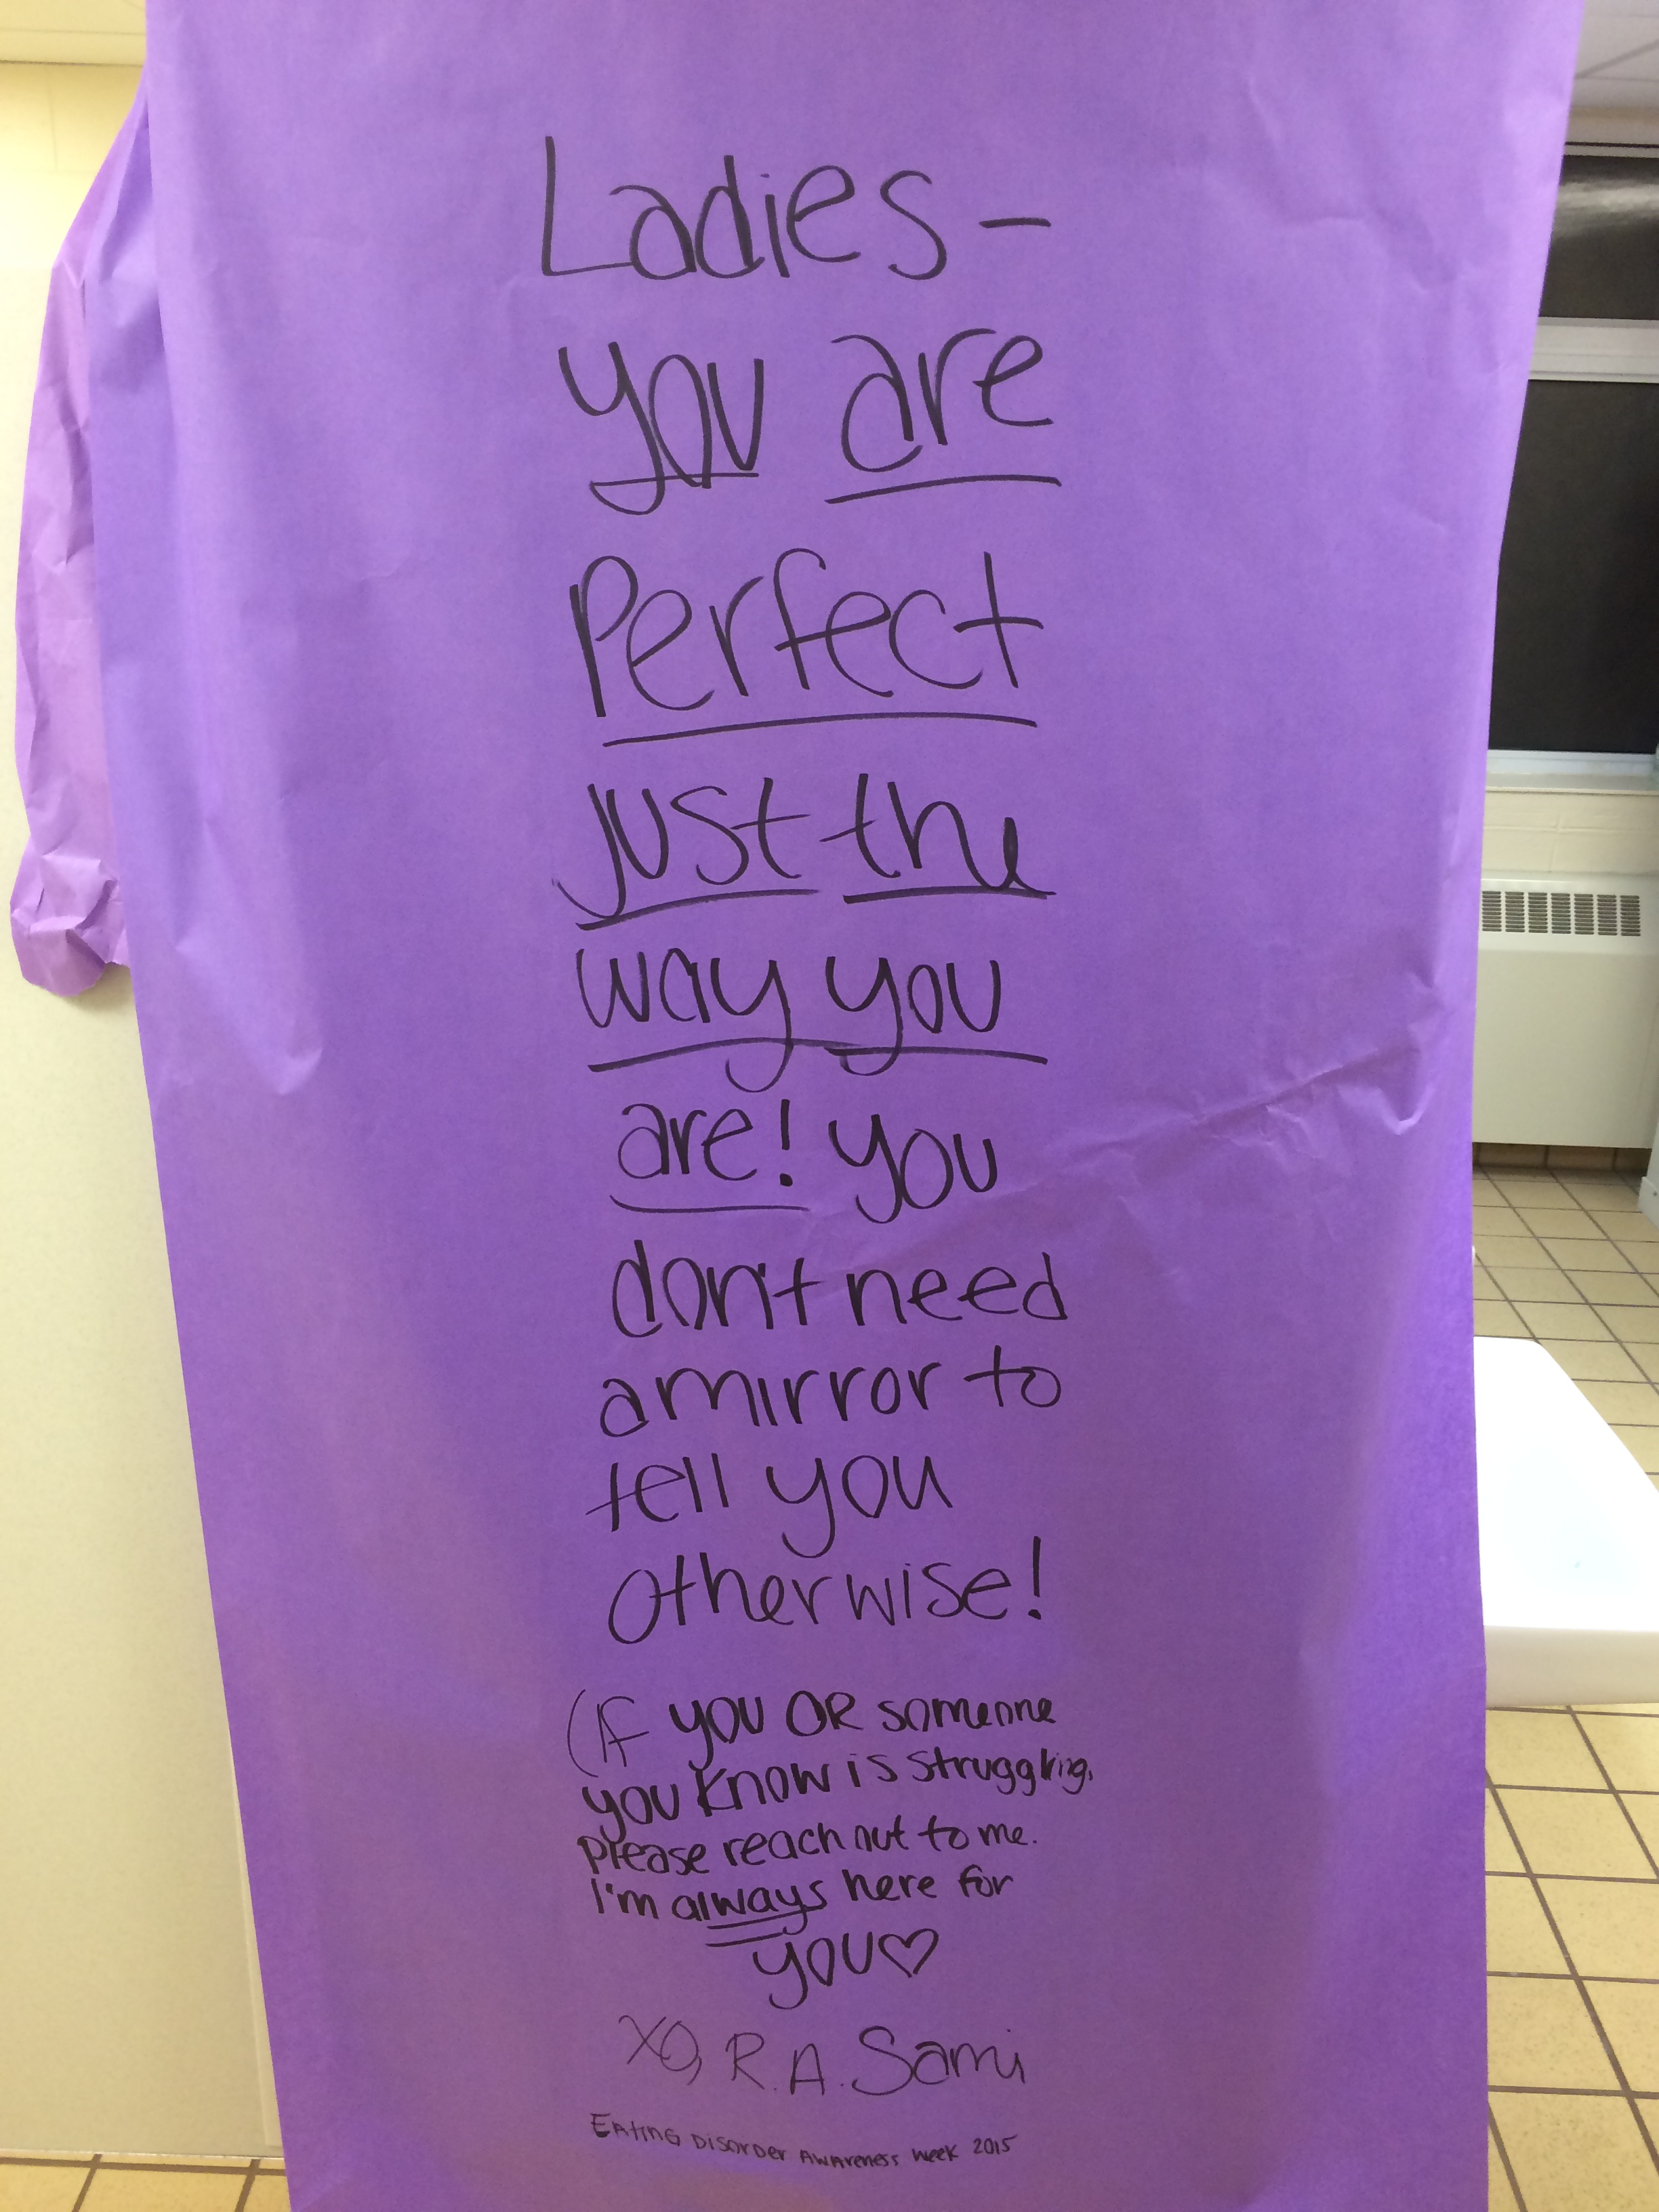 Ladies -
you are
Perfect
just the
way you
are! you
don't need
a mirror to
tell you
otherwise!
(If you OR someone
you know is struggling,
please reach out to me.
I'm always here for
you♡
XO, R.A. Sami
Eating Disorder Awareness Week 2015